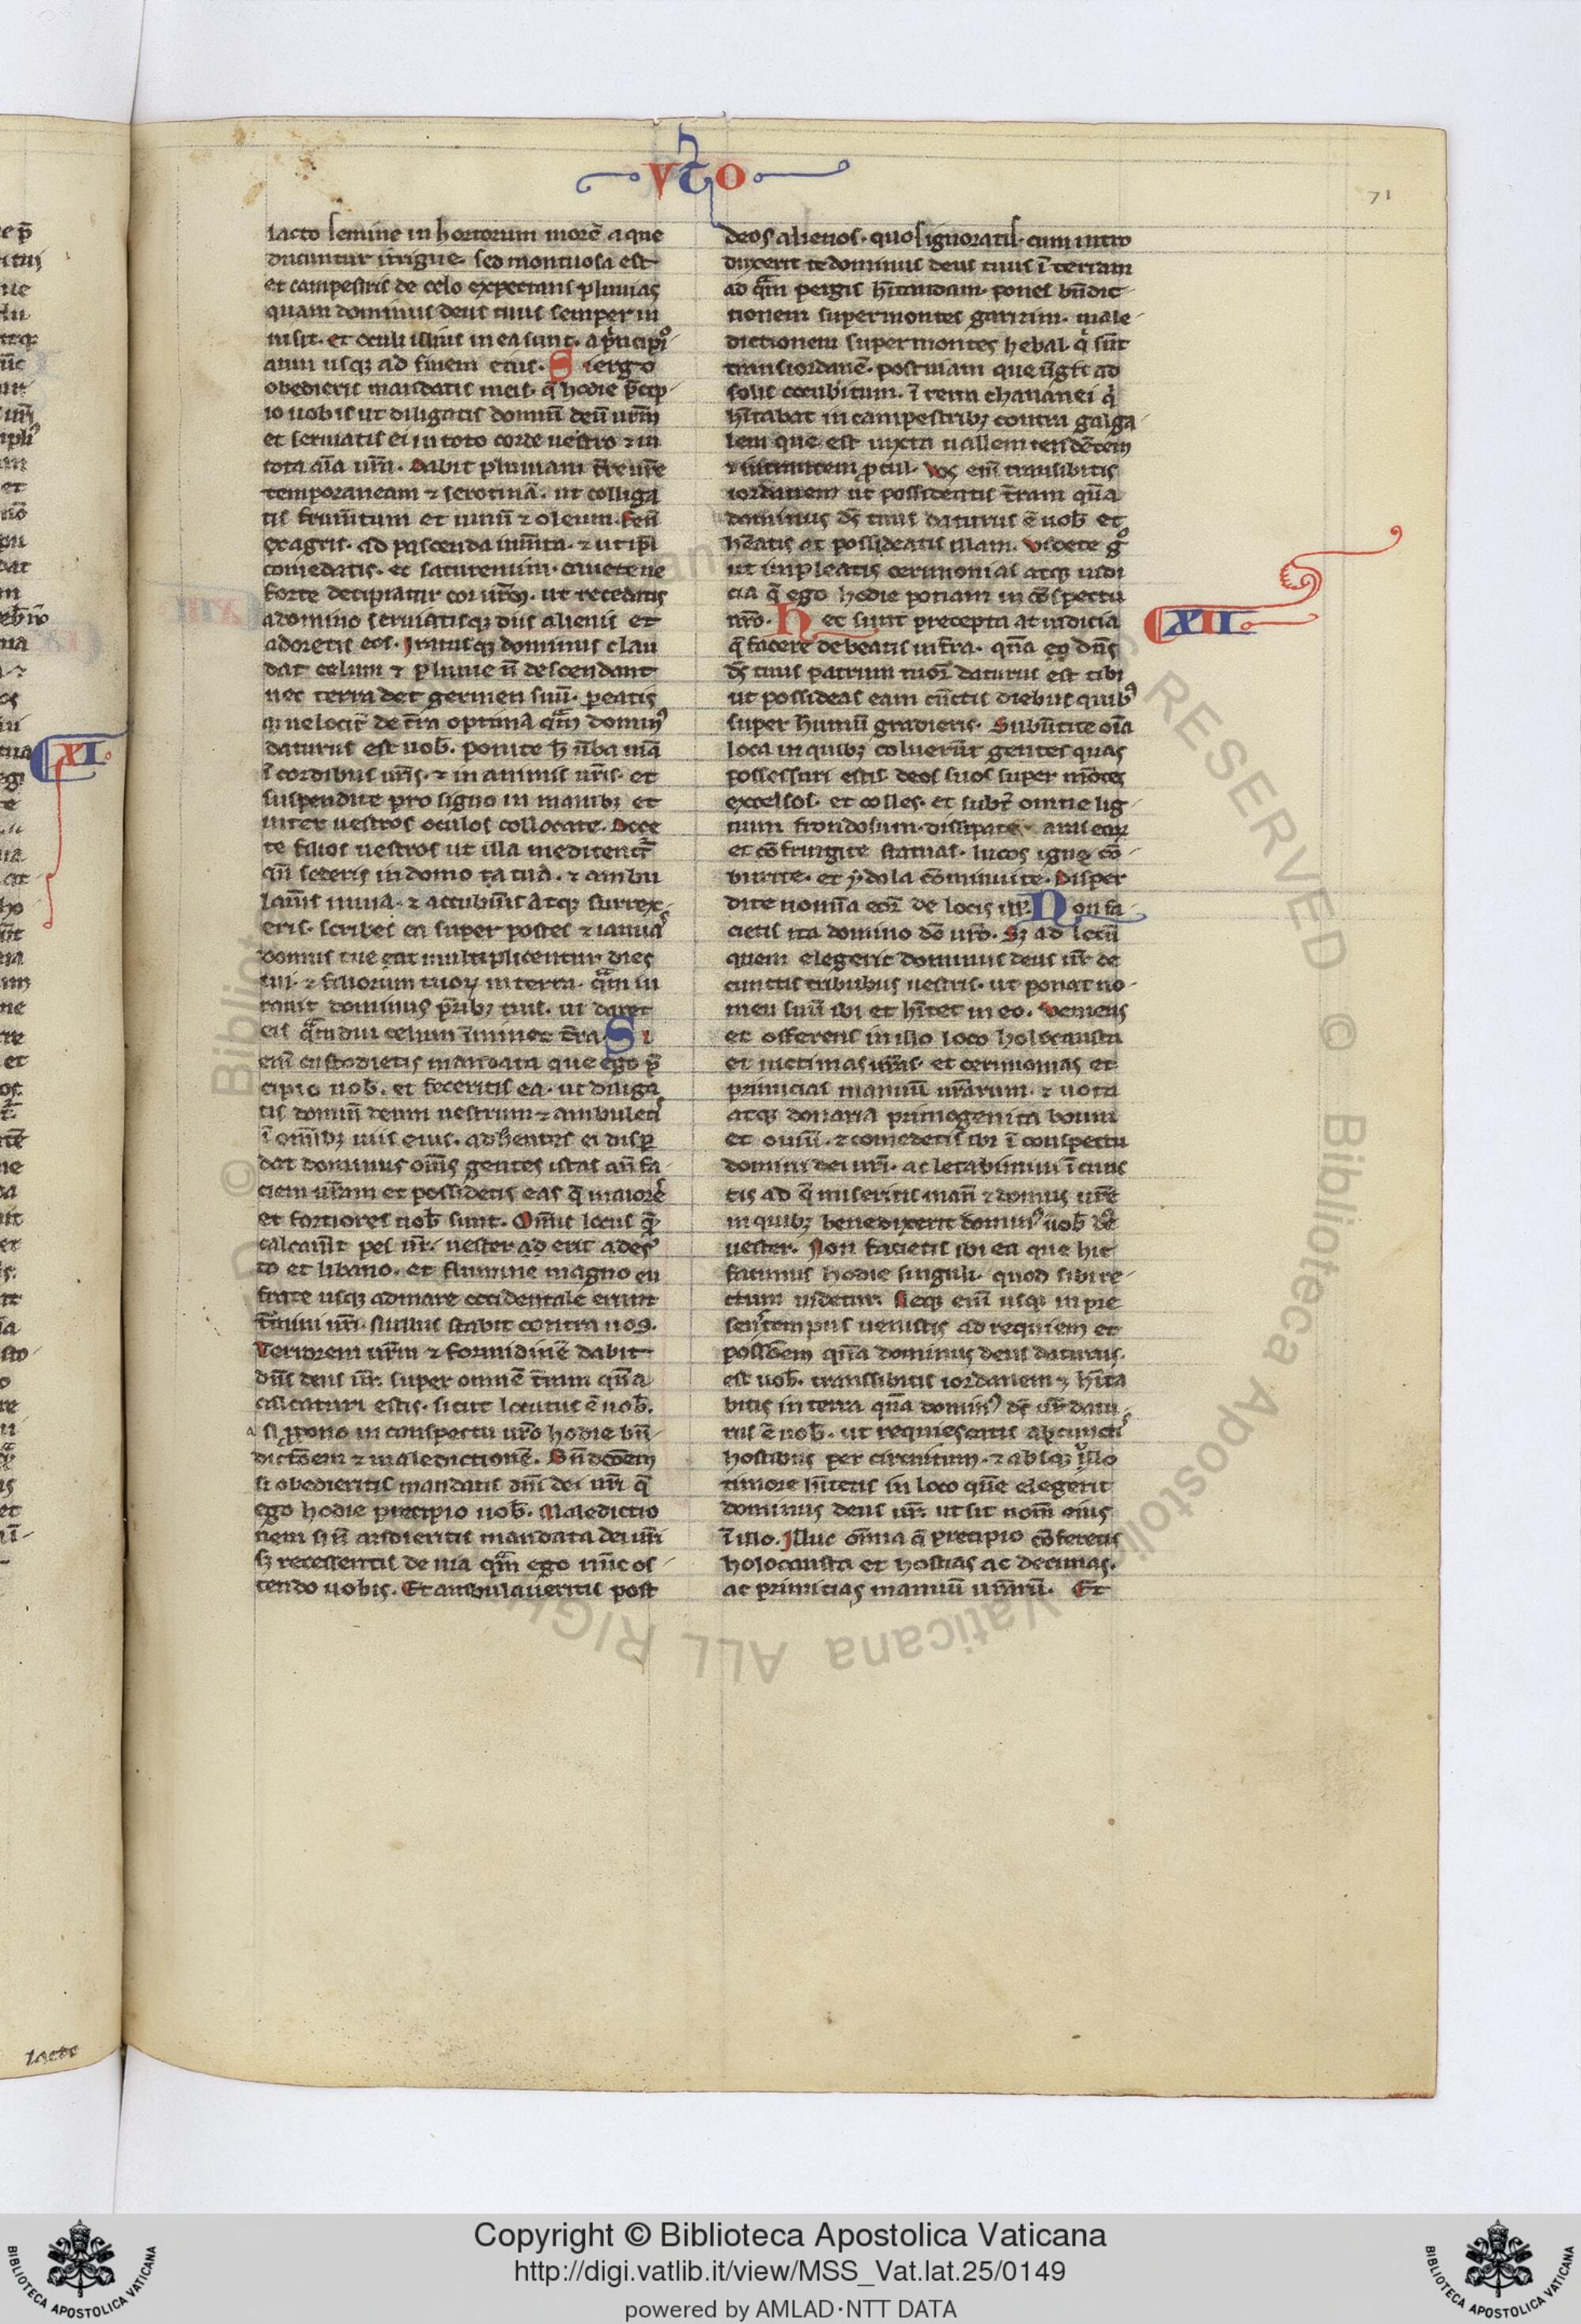 vto
71
Iacto semine in hortorum morē aque
ducuntur irrigue. sed montuosa est
et campestris de celo expectans pluuias
quam dominus deus tuus semper in
uisit. et oculi illius in ea sunt. a pͥncipio
anni usqꝫ ad finem eius. Si ergo
obedieritis mandatis meis. q̄ hodie p̄cip
io uobis ut diligatis dominū deū ur̄m
et seruiatis ei in toto corde uestro ⁊ in
tota aīa ur̄a. Dabit pluuiam t̄re ur̄e
temporaneam ⁊ serotinā. ut colliga
tis frum̄tum et uinū ⁊ oleum. Fenū
ex agris. ad pascenda ium̄ta. ⁊ ut ip̄i
comedatis. et saturemini. cauete ne
forte decipiatur cor ur̄m. ut recedatis
a domino seruiatisqꝫ diis alienis et
adoretis eos. Iratusqꝫ dominus clau
dat celum ⁊ pluuie n̄ descendant
nec terra det germen suū. peatis
qꝫ uelocit̄ de t̄ra optima qͣm dominꝰ
daturus est uob̄. ponite h̄ ūba mā
ī cordibus ur̄is. ⁊ in animis ur̄is. et
suspendite pro signo in manibꝫ et
inter uestros oculos collocate. Doce
te filios uestros ut illa meditent̄
qn̄ sederis in domo ta tua. ⁊ ambu
lau̅is in uia. ⁊ accubu̅is atqꝫ surrex
eris. scribes ea super postes ⁊ ianuas
domus tue ꝯͣt multiplicentur dies
tui. ⁊ filiorum tuoꝝ in terra. qͣm iu
rauit dominus pr̄ibꝫ tuis. ut daret
eis qͣmdiu celum īminet t̄ra. Si
eni̅ custodietis mandata que ego p̄
cipio uob̄. et feceritis ea. ut diliga
tis dominū deum uestrum ⁊ ambuletis
ī omībꝫ uiis eius. adherentes ei disp̱
dat dominus om̄s gentes istas an̄ fa
ciem ur̄am et possidetis eas q̄ maiores
et fortiores uob̄ sunt. Om̄is locus q̄
calcauīt pes ur̄. uester ad erit a deser
to et libano. et flumine magno eu
frate usqꝫ ad mare occidentale erunt
t̄mini ur̄i. nullus stabit contra uos.
Terrorem ur̄m ⁊ formidinē dabit
dn̄s deus ur̄. super omnē t̄ram qn̄a
calcaturi estis. sicut locutus ē uob̄.
ꝓpono in conspectu ur̄o hodie bn̄
dictōem ⁊ maledictionē. Bn̄dcōem
si obedieritis mandatis dn̄i dei ur̄i q̄
ego hodie precipio uob̄. Maledictio
nem si n̄ audieritis mandata dei ur̄i
sꝫ recesseritis de uia qͣm ego nūc os
tendo uobis. Et ambulaueritis post
deos alienos. quos ignoratis. cum intro
duxerit te dominus deus tuus ī terram
ad qͣm pergis h̄itandam. pones bn̄dic
tionem super montes garizim. male
dictionem super montes hebal. q̄ sūt
trans iordanē. post uiam que ūgit ad
solis occubitum. ī terra chananei qͥ
h̄itabat in campestribꝫ contra galga
lem que est iuxta uallem tendētem
⁊ intrantem procul. Vos eni̅ transibitis
iordanem ut possideatis t̄ram qn̄a
dominus ds̄ tuus daturus ē uob̄ et
h̄eatis ac possideatis illam. Videte gͦ
ut impleatis cerimonias atqꝫ iudi
cia q̄ ego hodie ponam in cōspectu
ur̄o. Hec sunt precepta at iudicia
XI
XII
q̄ facere debeatis in t̄ra. qn̄a dn̄s
ds̄ tuus patrum tuoꝝ daturus est tibi
ut possideas eam cūctis diebus quibꝰ
super humū gradieris. Subūtite oīa
loca in quibꝫ coluerūt gentes quas
possessuri estis. deos suos super mōtes
excelsos. et colles. et subt̄ omne lig
num frondosum. dissipate. aras eoꝝ
et cōfringite statuas. lucos igne cō
burite. et ydola cōminuite. Disper
dite nom̄a eoꝝ de locis ill. Non fa
cietis ita domino dō ur̄o. Sꝫ ad locū
quem elegerit dominus deus ur̄ de
cunctis tribubus uestris. ut ponat no
men suū ibi et h̄itet in eo. Venietis
et offerens in illo loco holocausta
et uictimas ur̄as. et cerimonias et
primicias manuū ur̄arum. ⁊ uota
atqꝫ donaria primogenita boum
et ouiū. ⁊ comedetis ibi ī conspectu
domini dei ur̄i. ac letabimini ī cunc
tis ad q̄ miseritis man̄ ⁊ domus ur̄e
in quibꝫ benedixerit dominꝰ uob̄ dꝰ
uester. Non facietis ibi ea que hic
facimus hodie singuli. quod sibi re
ctum uidetur. Neqꝫ eni̅ usqꝫ in pre
sens tempus uenistis ad requiem et
possēem qn̄a dominus deus daturus.
est uob̄. transsibitis iordanem ⁊ h̄ita
bitis in terra qn̄a dominꝰ ds̄ ur̄ datu
rus ē uob̄. ut requiescatis ab cunctis
hostibus per circuitum. ⁊ absqꝫ ullo
timore h̄itetis in loco que̅ elegerit
dominus deus ur̄. ut sit nom̄ eius
ī illo. Illuc om̄ia q̄ precipio cōferetis
holocausta et hostias ac decimas.
ac primicias manuū ur̄arū. Et
Iacto
Copyright © Biblioteca Apostolica Vaticana
http://digi.vatlib.it/view/MSS_Vat.lat.25/0149
powered by AMLAD·NTT DATA
BIBLIOTECA APOSTOLICA VATICANA
BIBLIOTECA APOSTOLICA VATICANA